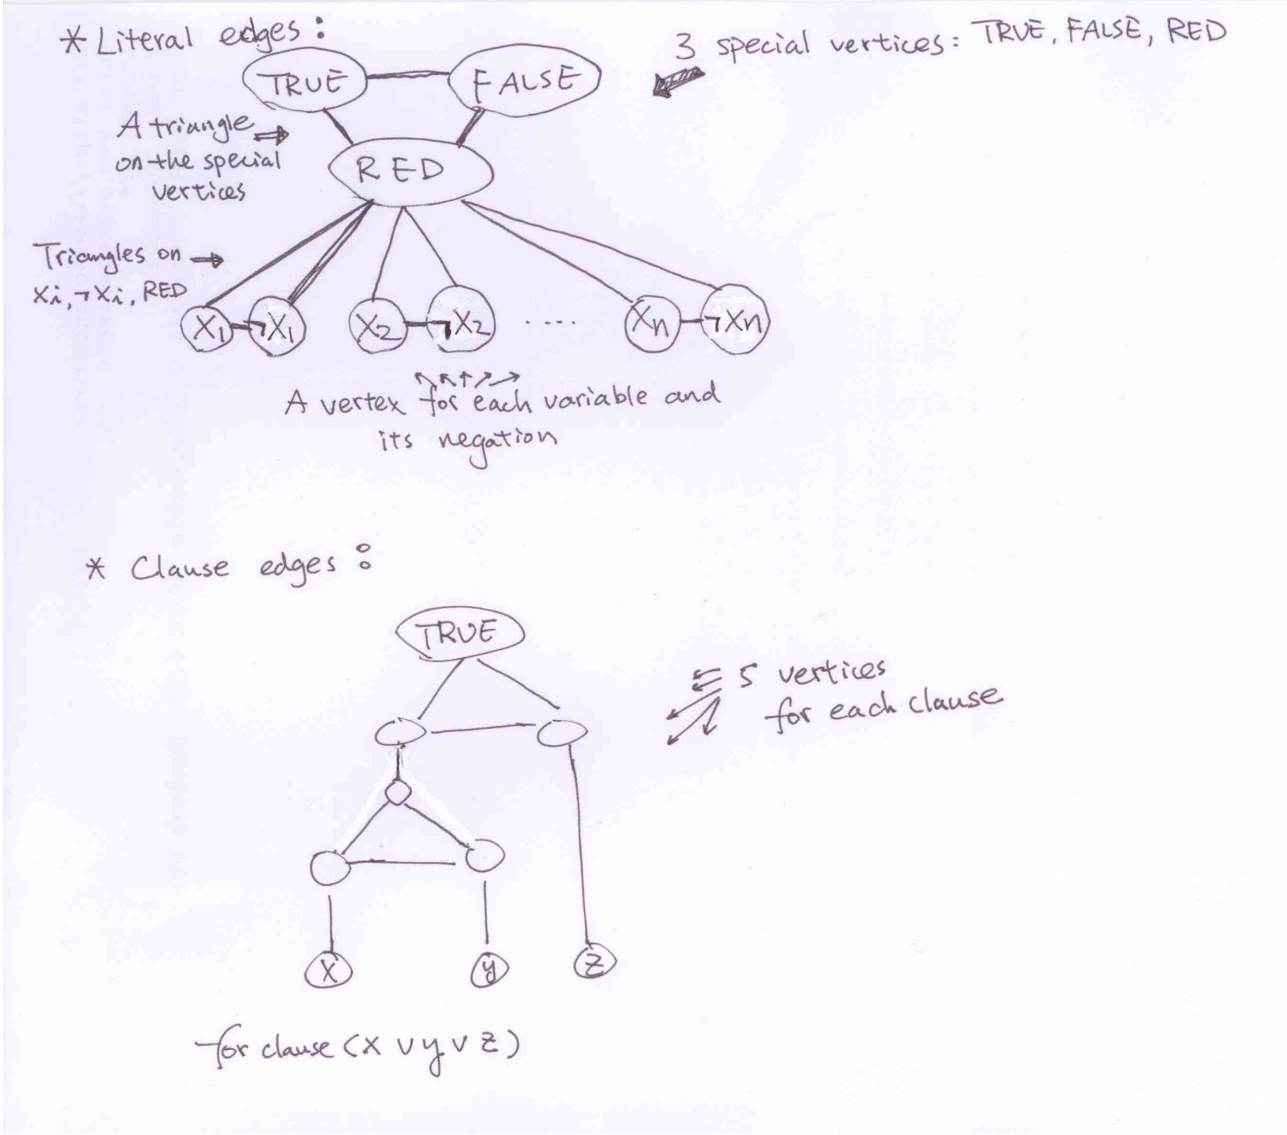 * Literal edges:
3 special vertices: TRUE, FALSE, RED
TRUE
FALSE
A triangle
on the special
vertices
RED
Triangles on
Xi, ¬Xi, RED
X1
¬X1
X2
¬X2
....
Xn
¬Xn
A vertex for each variable and
its negation
* Clause edges:
TRUE
5 vertices
for each clause
X
y
z
for clause (X ∨ y ∨ z)